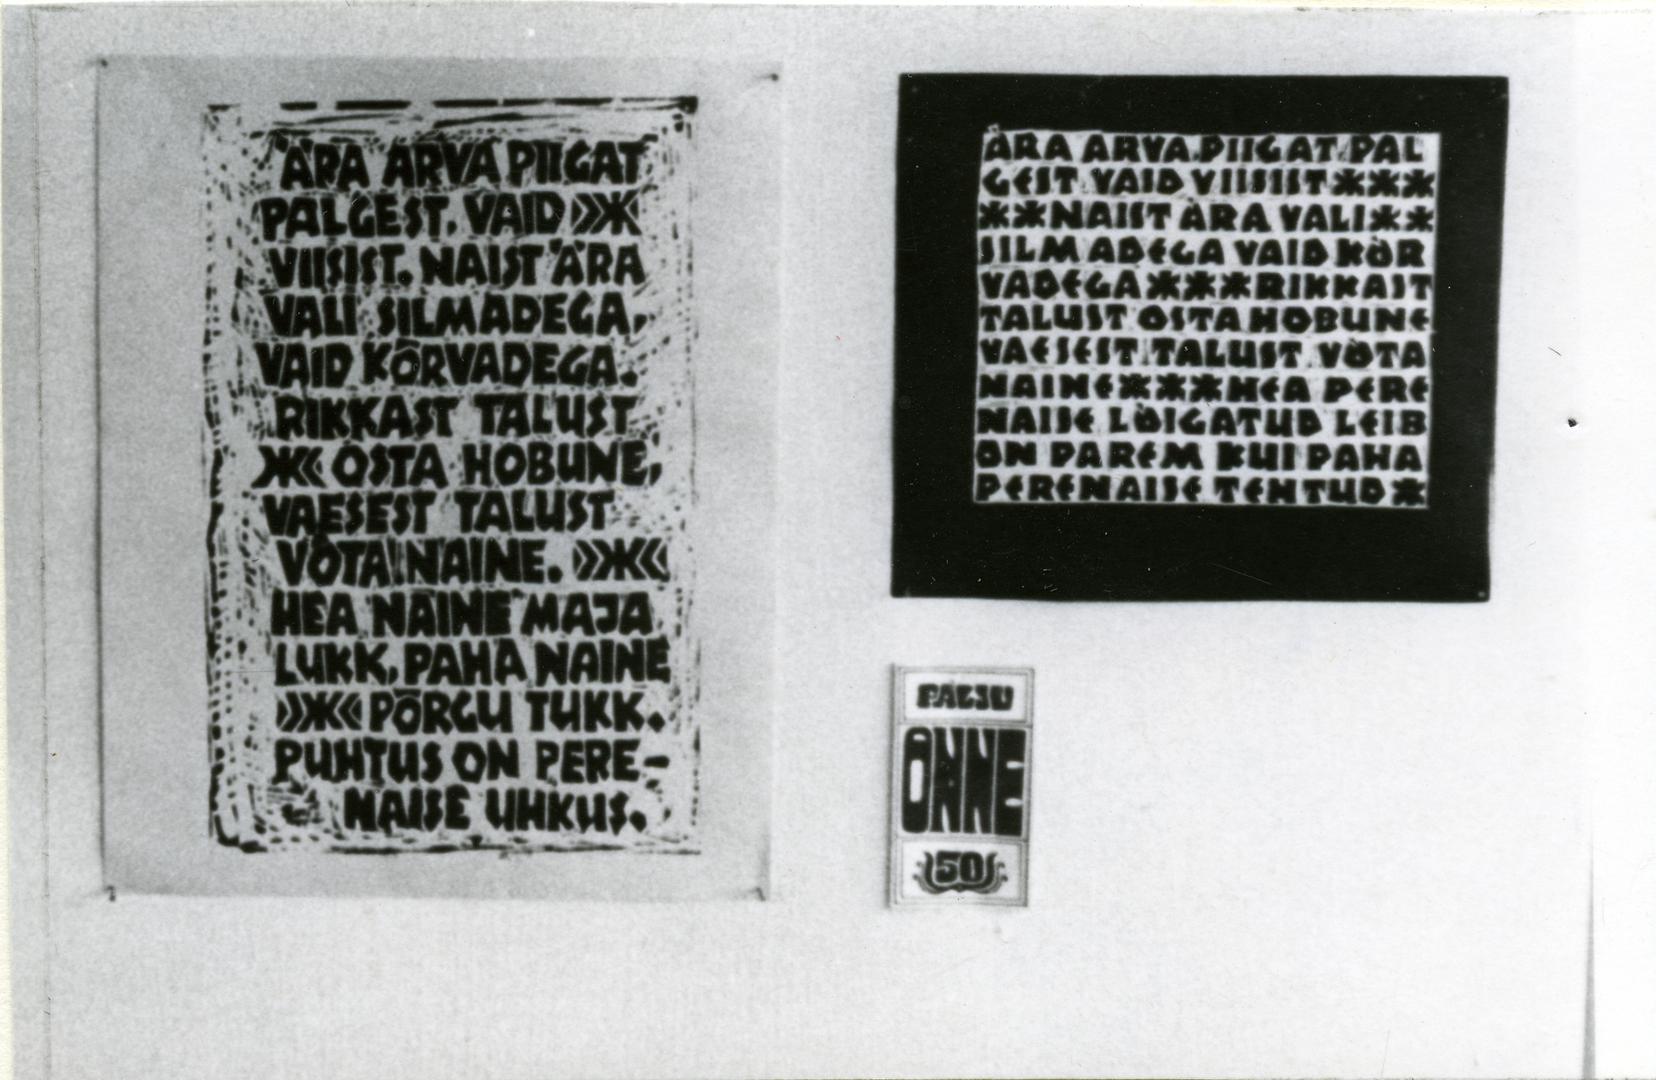 ÄRA ARVA PIIGAT
PALGEST, VAID
VIISIST. NAIST ÄRA
VALI SILMADEGA,
VAID KÕRVADEGA.
RIKKAST TALUST
OSTA HOBUNE,
VAESEST TALUST
VÕTA NAINE.
HEA NAINE MAJA
LUKK, PAHA NAINE
PÕRGU TUKK.
PUHTUS ON PERE-
NAISE UHKUS.
ÄRA ARVA PIIGAT PAL
GEST VAID VIISIST ***
**NAIST ÄRA VALI**
SILMADEGA VAID KÕR
VADEGA***RIKKAST
TALUST OSTA HOBUNE
VAESEST TALUST VÕTA
NAINE***HEA PERE
NAISE LÕIGATUD LEIB
ON PAREM KUI PAHA
PERENAISE TEHTUD*
PALJU
ÕNNE
50